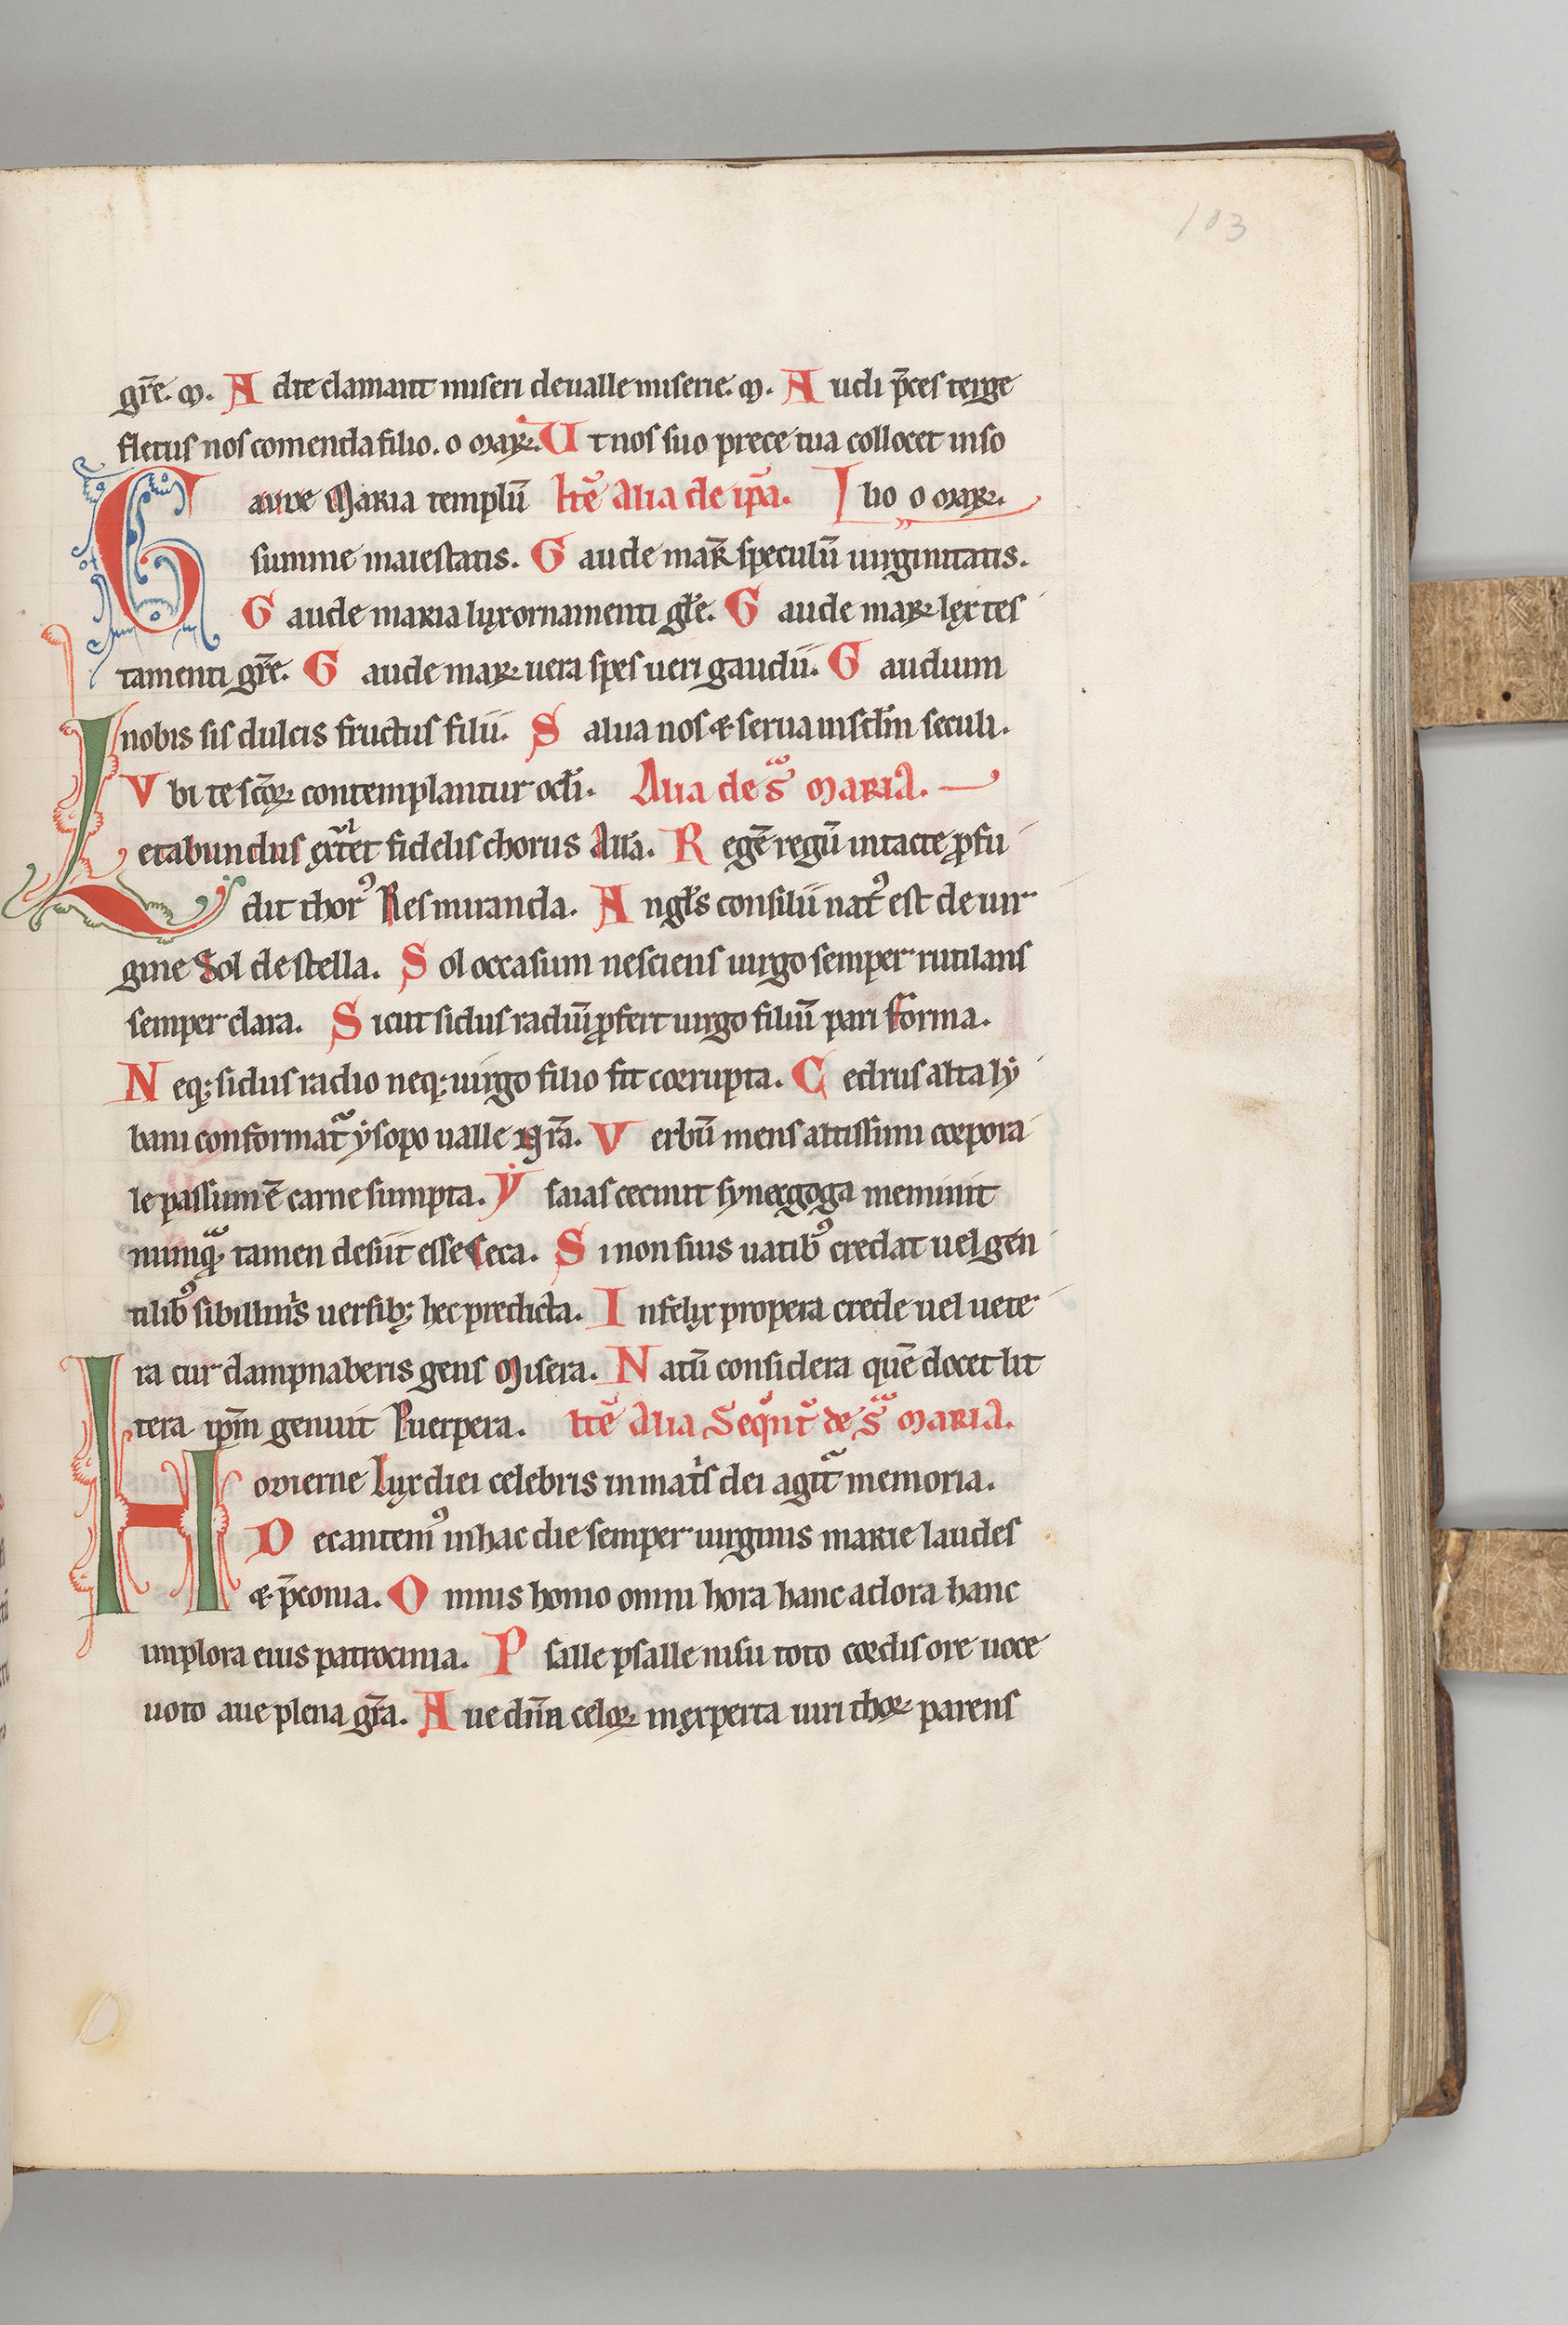 103
gr̄e. m. A d te clamant miseri de ualle miserie. m. A udi p̄ces terge
fletus nos comenda filio. o maR. U t nos suo prece tua collocet in so
G aude Maria templū Itē Alia de ip̄a. lio o maR.
summe maiestatis. G aude maR speculū uirginitatis.
G aude maria lux ornamenti gl̄e. G aude maR lex tes
tamenti gr̄e. G aude maR uera spes ueri gaudii. G audium
nobis sis dulcis fructus filii. S alua nos & serua in scl̄m seculi.
V bi te scōꝝ contemplantur oc̄li. Alia de sͣ MARIA.
L etabundus exͣltet fidelis chorus All̄a. R egē regū intacte ꝓfu
dit thorꝰ Res miranda. A ngl̄s consilii natꝰ est de uir
gine Sol de stella. S ol occasum nesciens uirgo semper rutilans
semper clara. S icut sidus radiū ꝓfert uirgo filiū pari forma.
N eq; sidus radio neq; uirgo filio fit corrupta. C edrus alta ly
bani conformatͣ ẏsopo ualle nr̄a. V erbū mens altissimi corpora
le passum ē carne sumpta. Ẏ saias cecinit synagoga meminit
numqͣꝫ tamen desiit esse ceca. S i non suis uatibꝰ credat uel gen
tilibꝰ sibillinis uersibꝫ hec predicta. I nfelix propera crede uel uete
ra cur dampnaberis gens Misera. N atū considera quē docet lit
tera ip̄m genuit Puerpera. Itē Alia Sequitᵘ de sͣ MARIA.
H odierne Lux diei celebris in mat̓s dei agitͣ memoria.
D ecantemꝰ in hac die semper uirginis marie laudes
& p̄conia. O mnis homo omni hora hanc adora hanc
implora eius patrocinia. P salle psalle nisu toto cordis ore uoce
uoto aue plena gr̄a. A ue dn̄a celoꝝ inexperta uiri thoꝝ parens